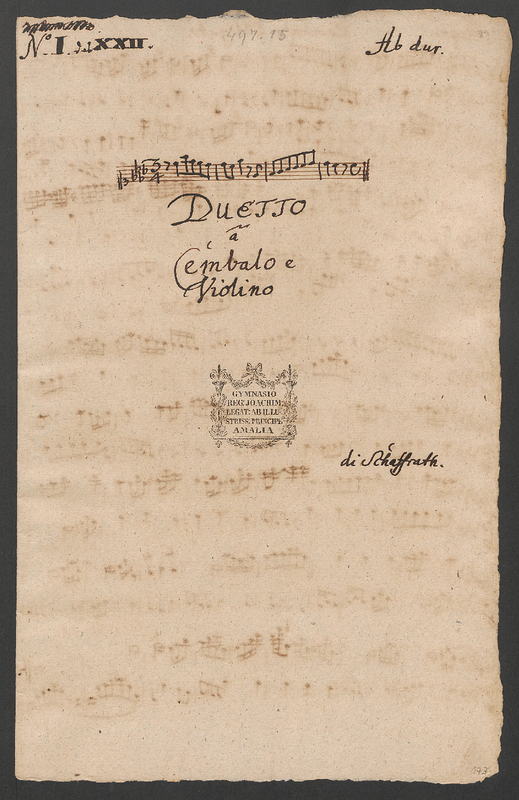 497.15
Nº. I. del XXII.
Ab dur.
Duetto
a
Cembalo e
Violino
GYMNASIO
REG. JOACHIM.
LEGAT: AB ILLU
STRISS. PRINCIPE
AMALIA
di Schaffrath.